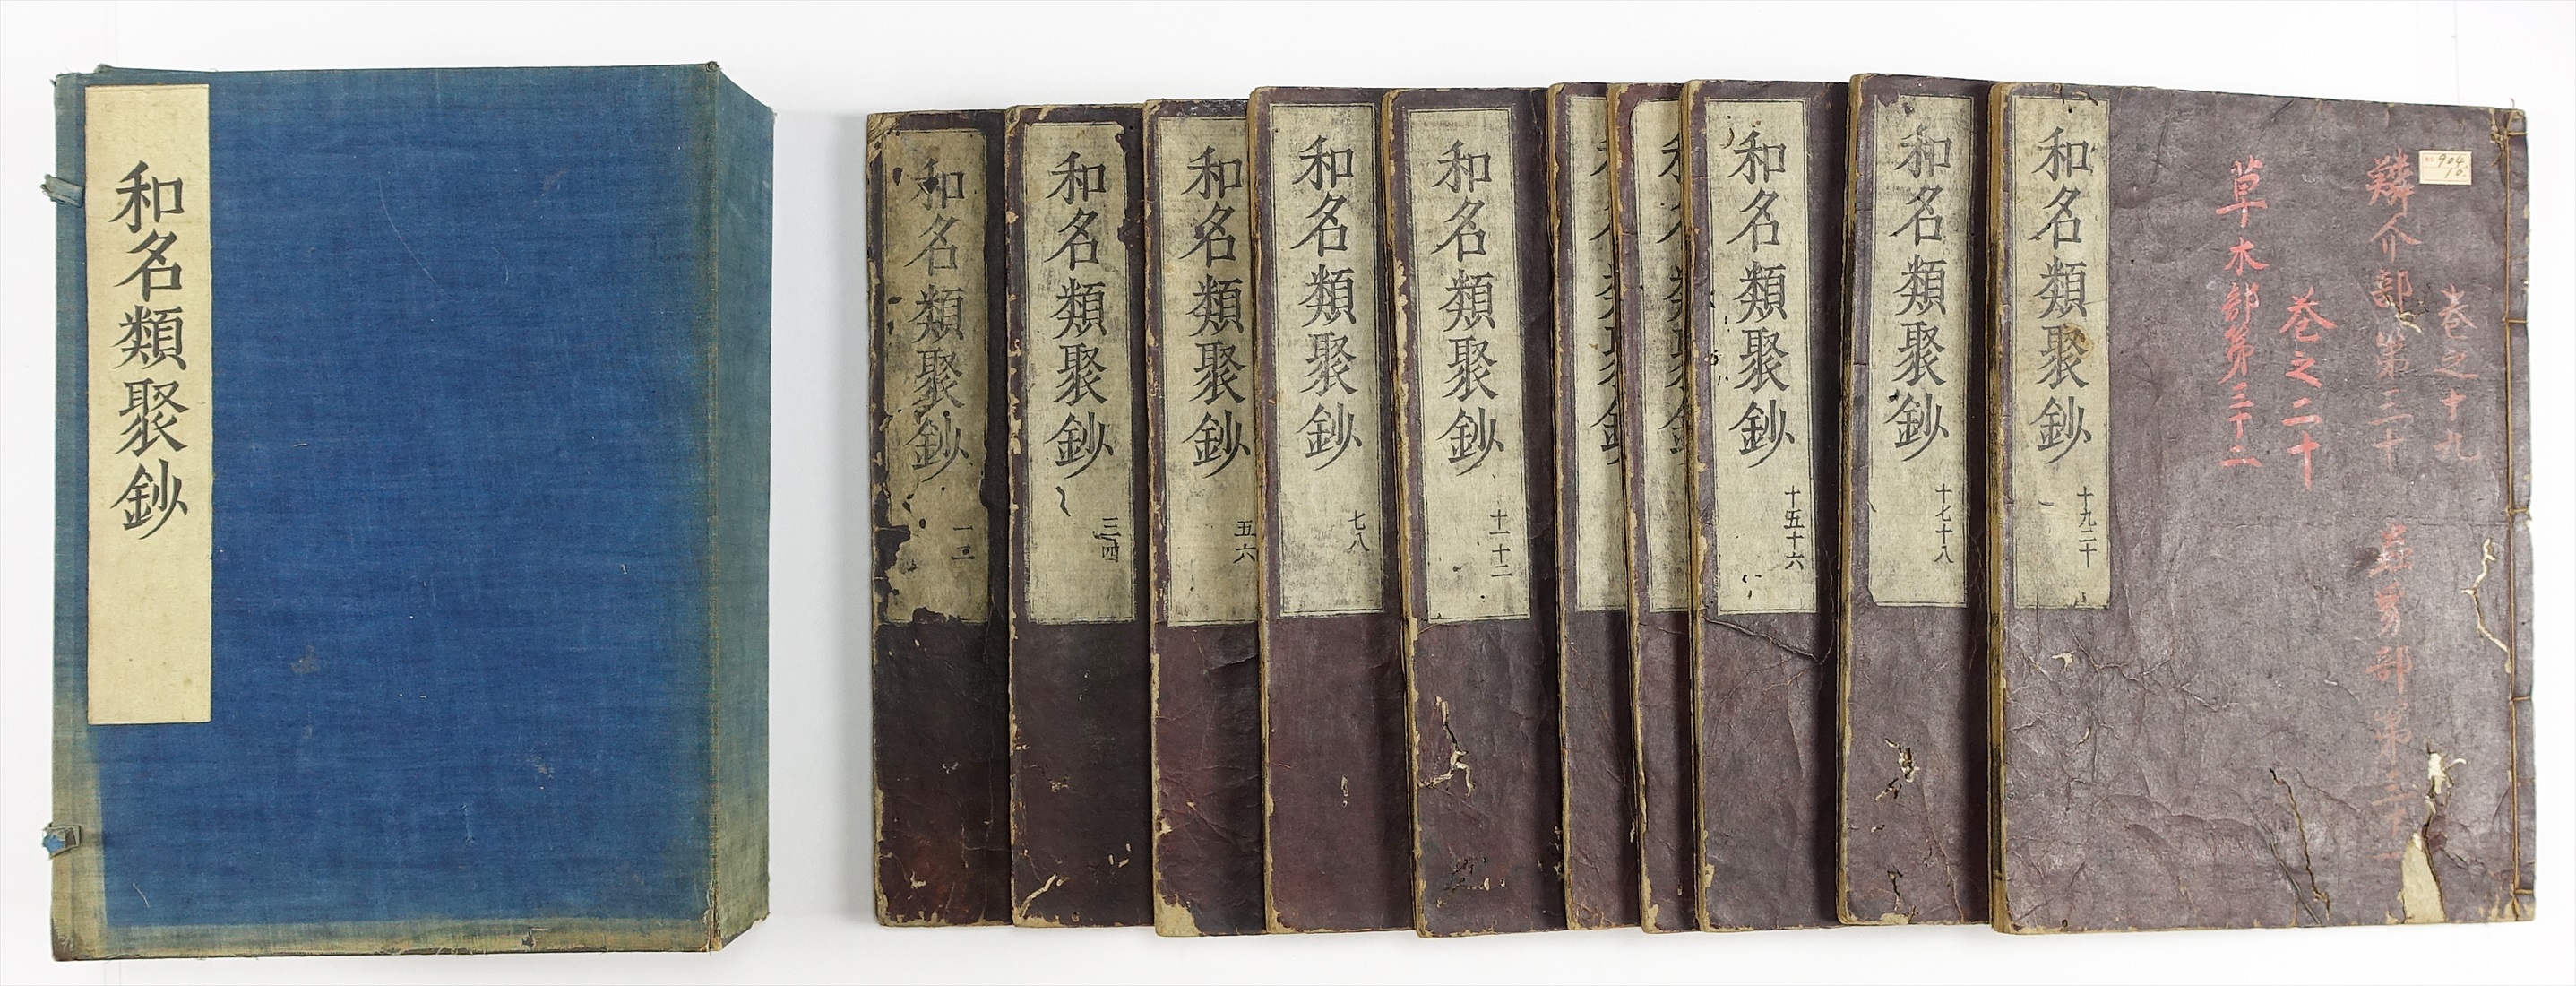 和名類聚鈔
和名類聚鈔
一二
和名類聚鈔
三四
和名類聚鈔
五六
和名類聚鈔
七八
和名類聚鈔
十一十二
和名類聚鈔
和名類聚鈔
和名類聚鈔
十五十六
和名類聚鈔
十七十八
和名類聚鈔
十九二十
卷之十九
鱗介部第三十
蟲豸部第三十一
卷之二十
草木部第三十二
904
10